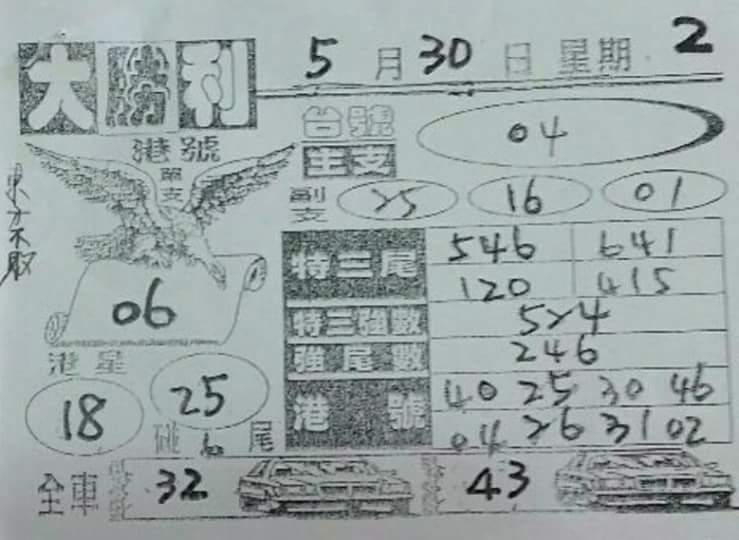 大勝利 5月30日 星期2
港號 單支 06
台號 主支 04
副支 25 16 01
特三尾 546 641
120 415
特三強數 524
強尾數 246
港號 40 25 30 46
04 26 31 02
東方不敗
港星 18 25
碰6尾
全車 32 43